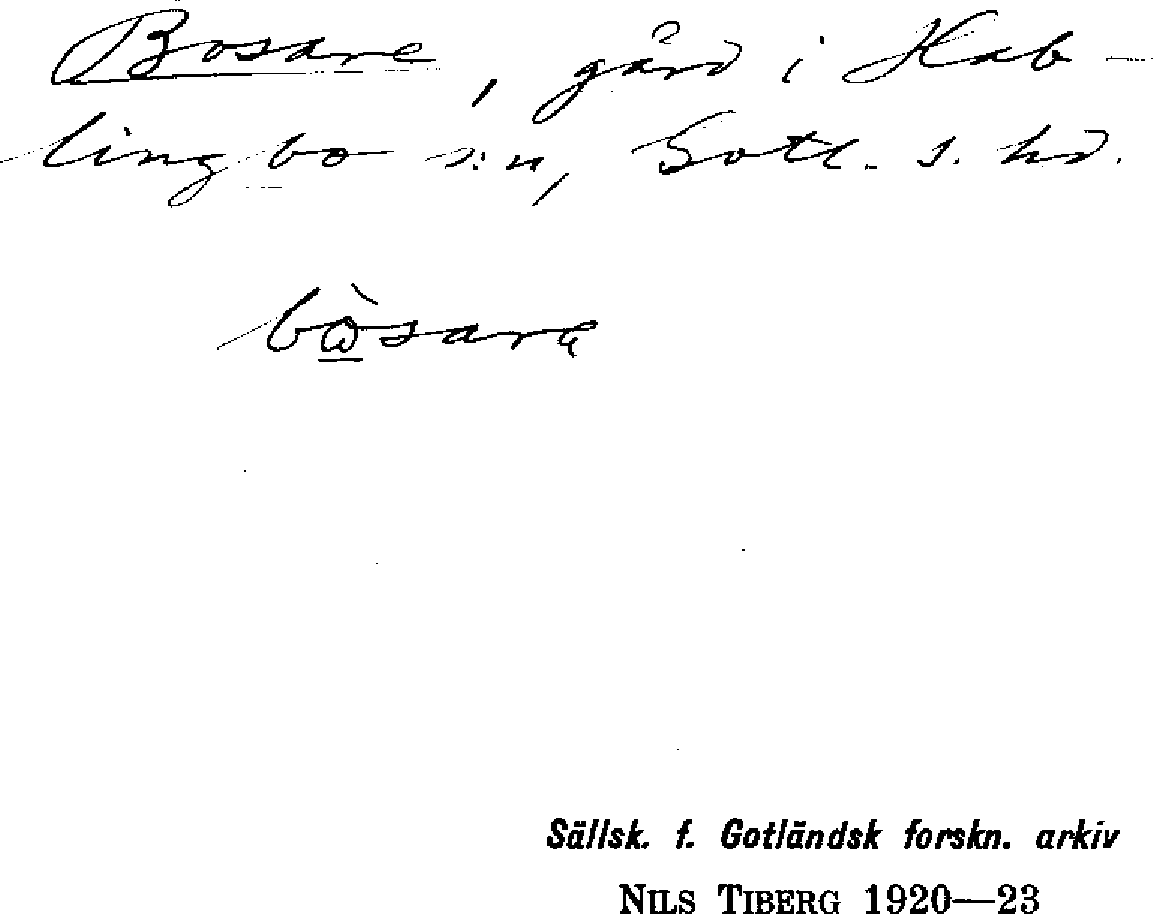 Bosare, gård i Hab-
lingbo s:n, Gotl. s. hd.
bὼsarę
Sällsk. f. Gotländsk forskn. arkiv
NILS TIBERG 1920—23